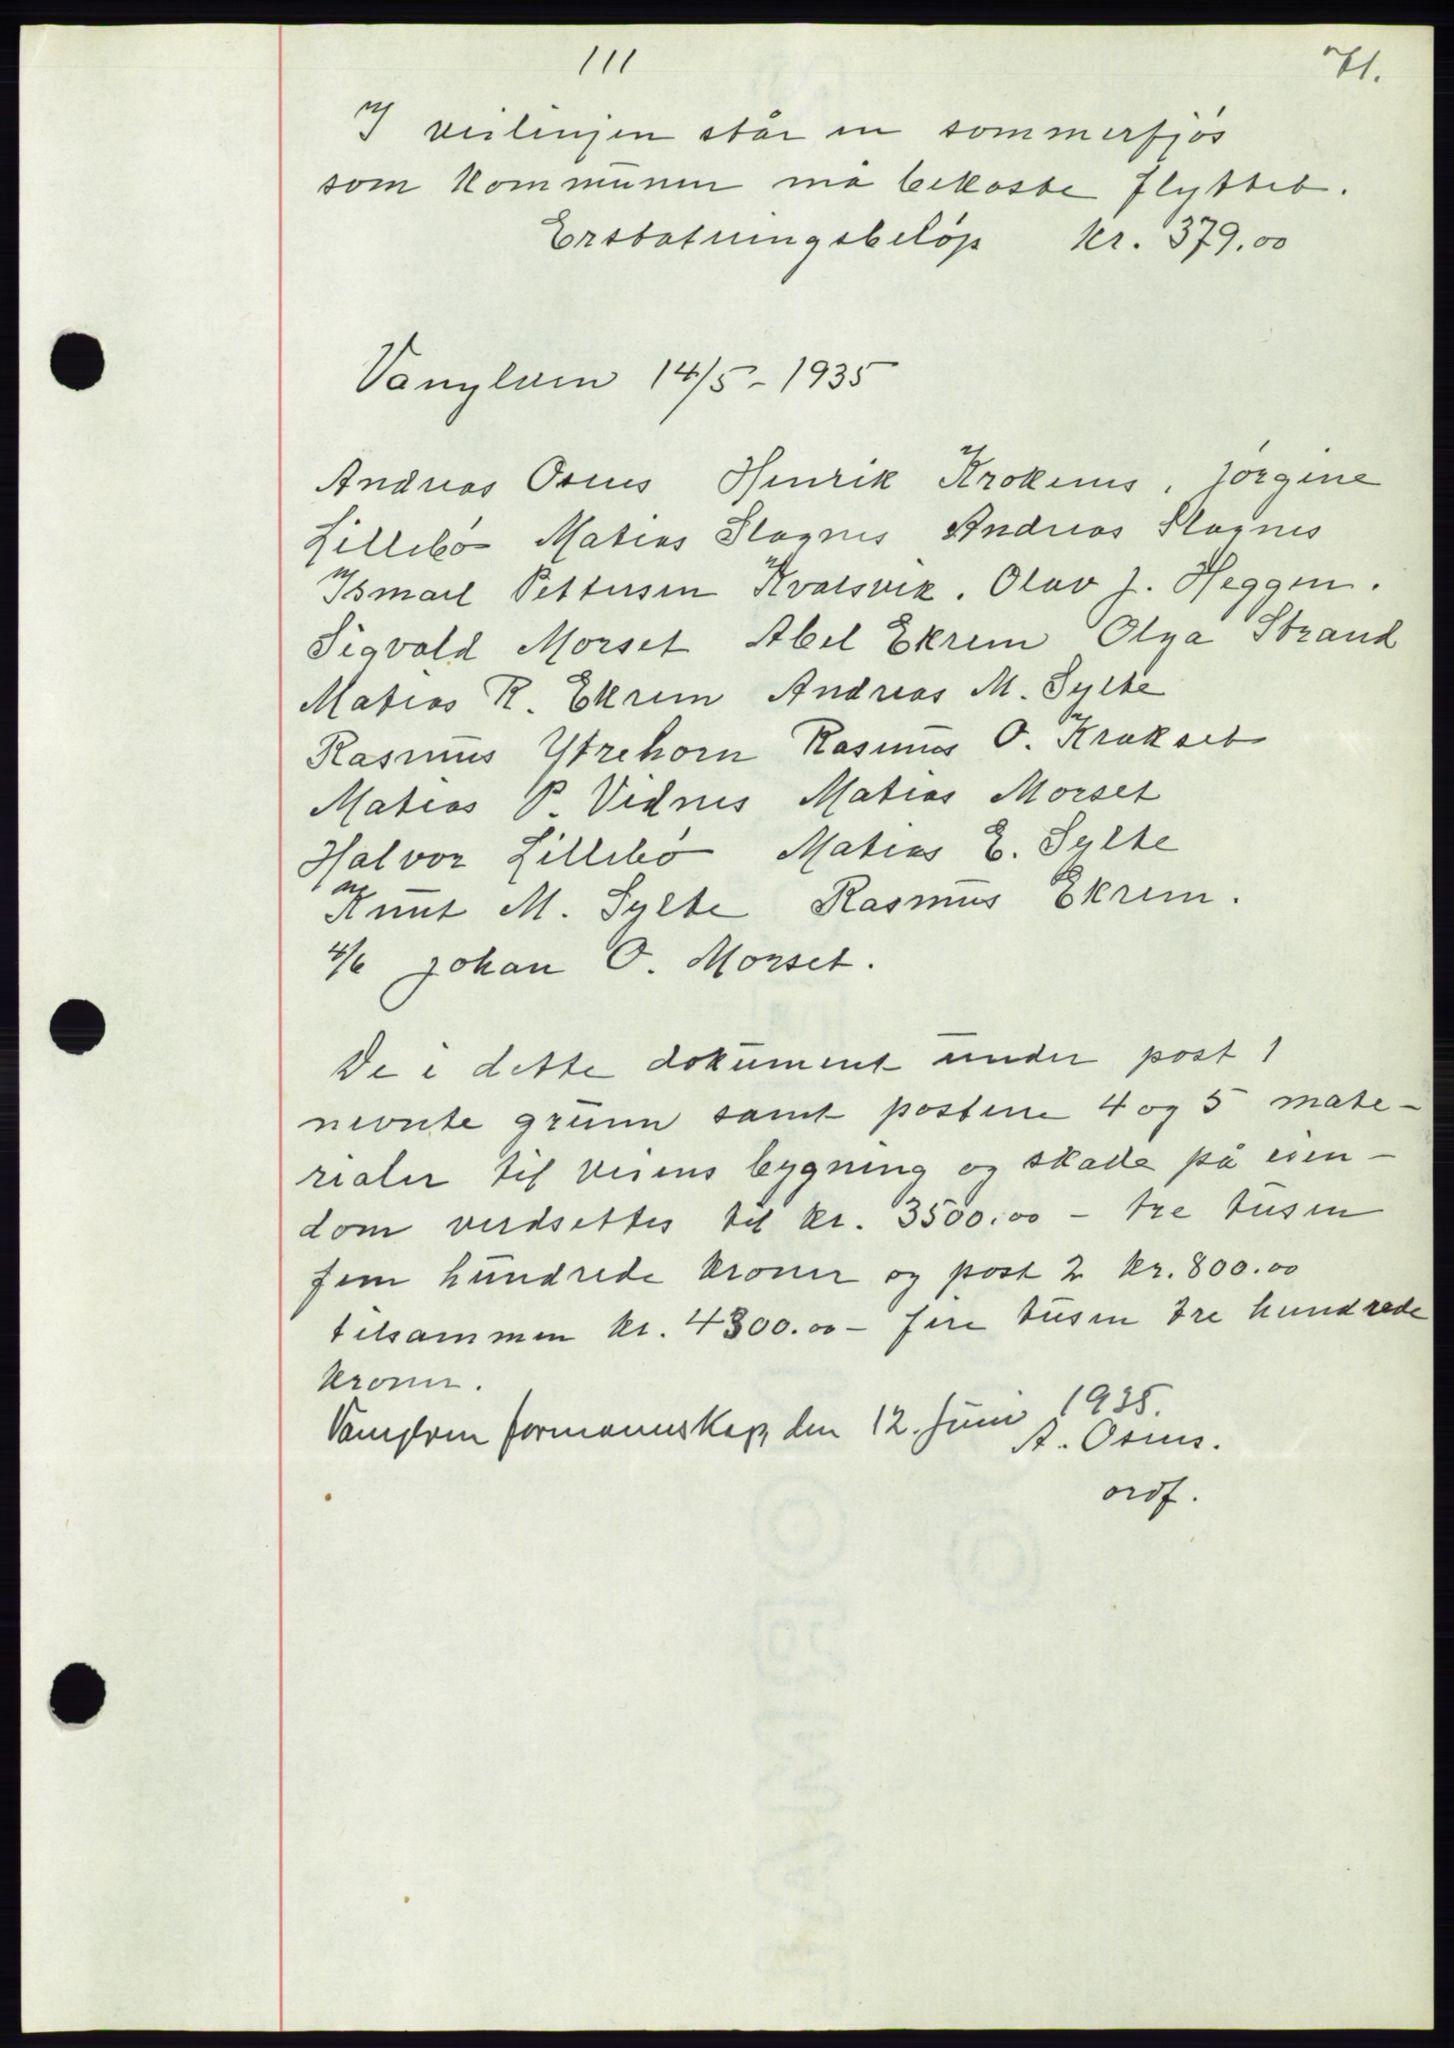 111
71.
I veilinjen står en sommerfjøs
som kommunen må bekoste flyttet.
Erstatningsbeløp kr. 379.00
Vanylven 14/5 - 1935
Andreas Osnes Henrik Krokenes, Jørgine
Lillebø Matias Slagnes Andreas Slagnes
Ismael Pettersen Kvalsvik. Olav J. Heggen.
Sigvald Morset Abel Ekrem Olga Strand
Matias R. Ekrem Andreas M. Sylte
Rasmus Ytrehorn Rasmus O. Krakset
Matias P. Vidnes Matias Morset
Halvor Lillebø Matias E. Sylte
Knut M. Sylte Rasmus Ekrem.
4/6 Johan O. Morset.
De i dette dokument under post 1
nevnte grunn samt postene 4 og 5 mate-
rialer til veiens bygning og skade på eien-
dom verdsettes til kr. 3500.00 - tre tusen
fem hundrede kroner og post 2 kr. 800.00
tilsammen kr. 4300.00 - fire tusen tre hundrede
kroner.
Vanylven formannskap, den 12. juni 1935.
A. Osnes.
ordf.